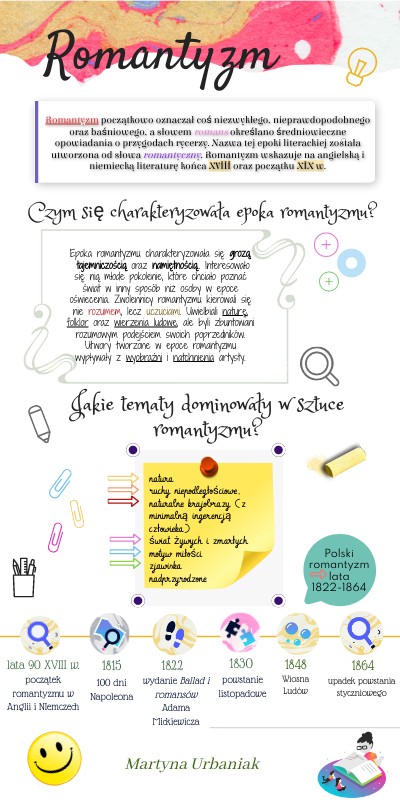 Romantyzm
Romantyzm początkowo oznaczał coś niezwykłego, nieprawdopodobnego
oraz baśniowego, a słowem romans określano średniowieczne
opowiadania o przygodach rycerzy. Nazwa tej epoki literackiej została
utworzona od słowa romantyczny. Romantyzm wskazuje na angielską i
niemiecką literaturę końca XVIII oraz początku XIX w.
Czym się charakteryzowała epoka romantyzmu?
Epoka romantyzmu charakteryzowała się grozą,
tajemniczością oraz namiętnością. Interesowało
się nią młode pokolenie, które chciało poznać
świat w inny sposób niż osoby w epoce
oświecenia. Zwolennicy romantyzmu kierowali się
nie rozumem, lecz uczuciami. Uwielbiali naturę,
folklor oraz wierzenia ludowe, ale byli zbuntowani
rozumowym podejściem swoich poprzedników.
Utwory tworzone w epoce romantyzmu
wypływały z wyobraźni i natchnienia artysty.
Jakie tematy dominowały w sztuce
romantyzmu?
natura
ruchy niepodległościowe,
naturalne krajobrazy (z
minimalną ingerencją
człowieka)
świat żywych i zmarłych
motyw miłości
zjawiska
nadprzyrodzone
Polski
romantyzm
lata
1822-1864
lata 90 XVIII w.
początek
romantyzmu w
Anglii i Niemczech
1815
100 dni
Napoleona
1822
wydanie Ballad i
romansów
Adama
Mickiewicza
1830
powstanie
listopadowe
1848
Wiosna
Ludów
1864
upadek powstania
styczniowego
Martyna Urbaniak